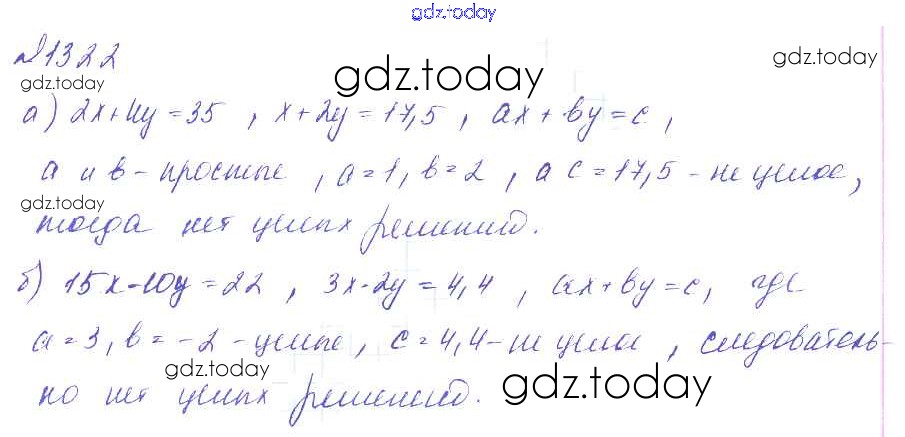 gdz.today
№1322
gdz.today
gdz.today
gdz.today
а) 2x+4y=35 , x+2y=17,5 , ax+by=c ,
а и в - простые , a=1, b=2 , а c=17,5 - не целое,
gdz.today
тогда нет целых решений.
б) 15x-10y=22 , 3x-2y=4,4 , ax+by=c, где
a=3, b=-2 - целые, c=4,4 - не целое , следователь-
gdz.today
gdz.today
но нет целых решений.